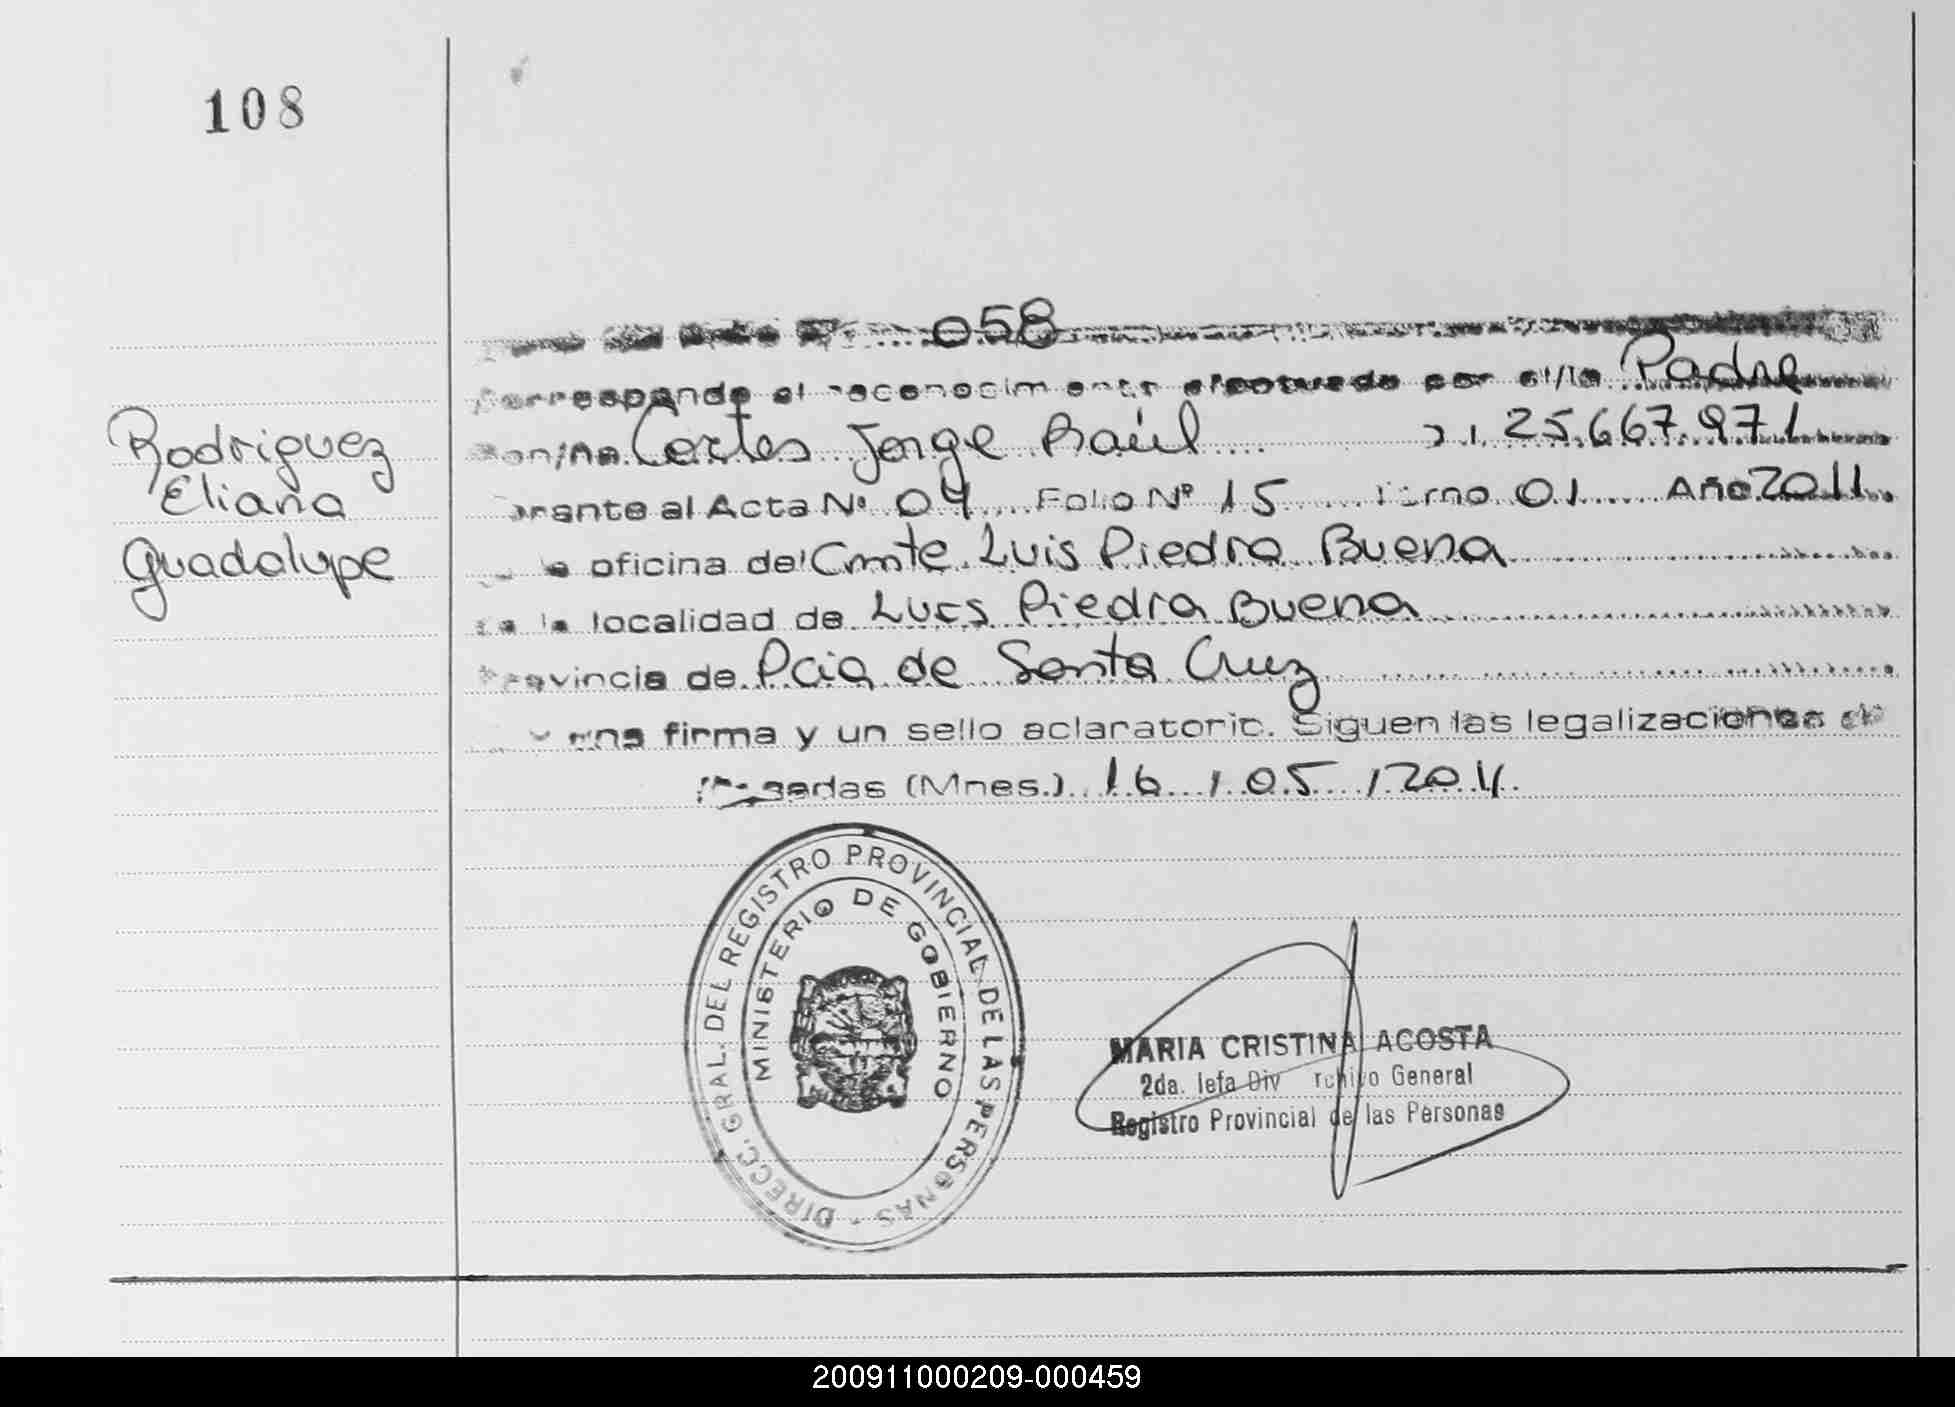 108
058
Corresponde al reconocimiento efectuado por el/la Padre
Rodriguez
Eliana
Guadalupe
Don/ña Cortes Jorge Raúl D.I. 25.667.971
orante al Acta Nº 04 Folio Nº 15 Tomo 01 Año 2011
oficina de Cmte. Luis Piedra Buena
de la localidad de Lucs Piedra Buena
Provincia de Pcia de Santa Cruz
una firma y un sello aclaratorio. Siguen las legalizaciones de
Posadas (Mnes.) 16 / 05 / 2011.
DIRECC. GRAL. DEL REGISTRO PROVINCIAL DE LAS PERSONAS -
MINISTERIO DE GOBIERNO
MARIA CRISTINA ACOSTA
2da. Jefa Div Archivo General
Registro Provincial de las Personas
200911000209-000459